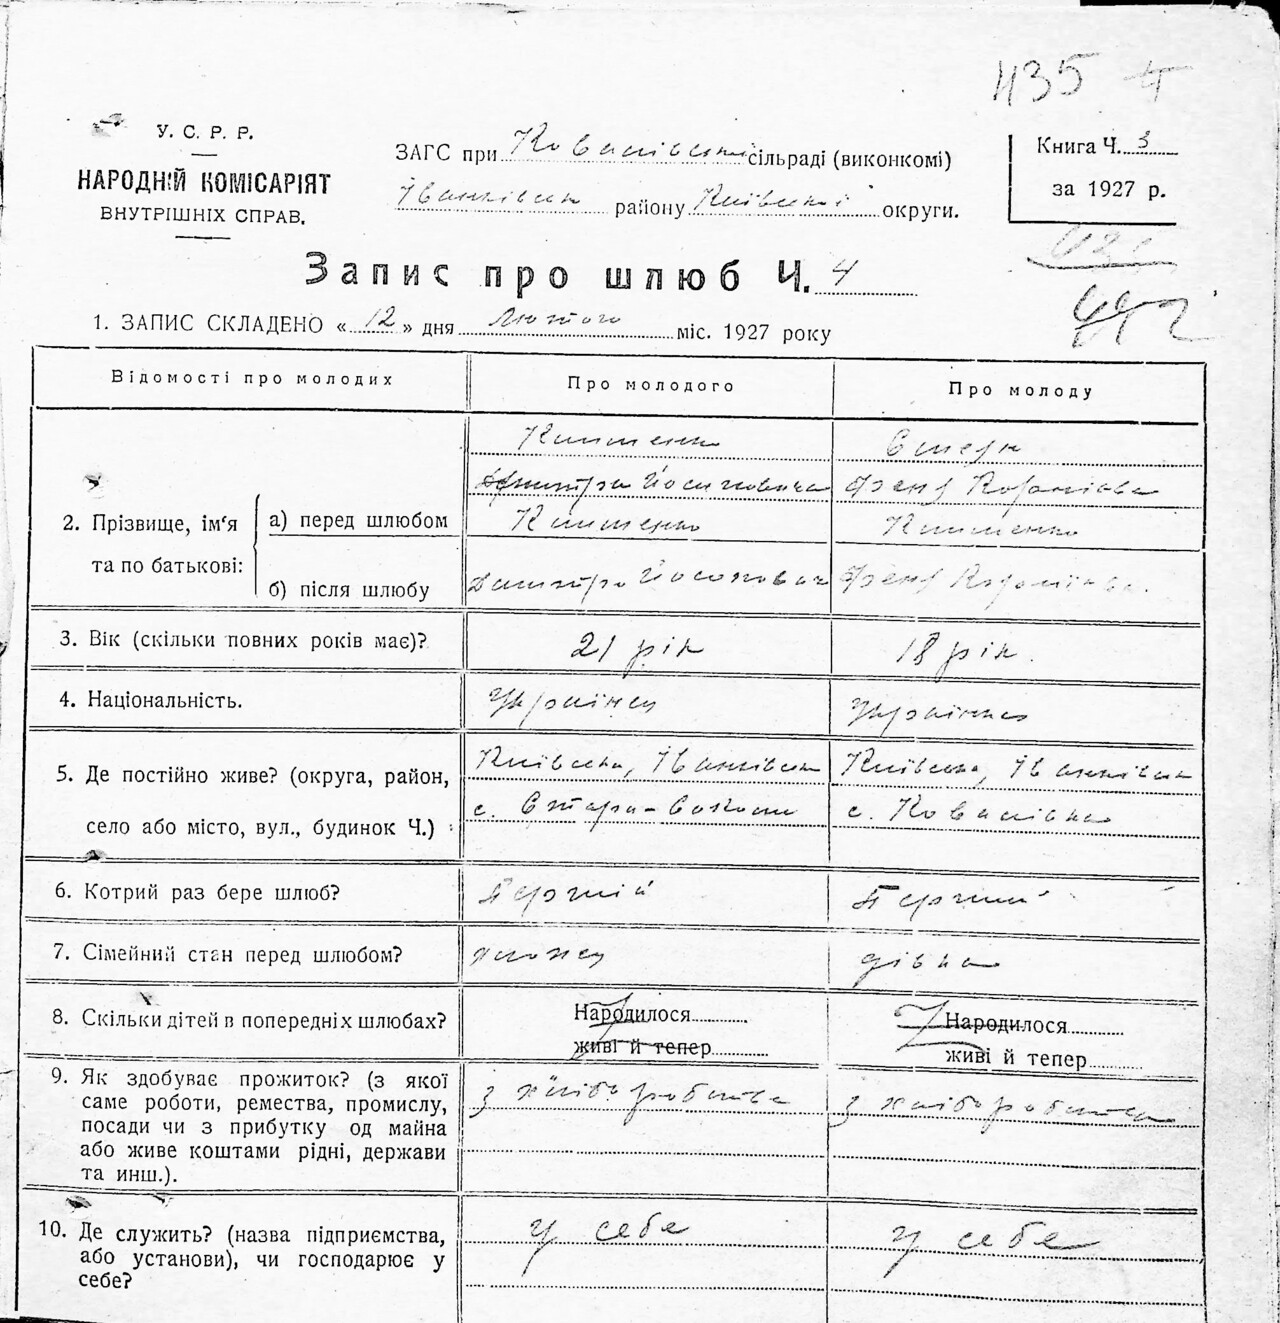 435
У. С. Р. Р.
НАРОДНІЙ КОМІСАРІЯТ
ВНУТРІШНІХ СПРАВ.
ЗАГС при Ковалівській сільраді (виконкомі)
Іванківськ району Київської округи.
Книга Ч. 3
за 1927 р.
Запис про шлюб Ч. 4
1. ЗАПИС СКЛАДЕНО « 12 » дня Лютого міс. 1927 року
Відомості про молодих
Про молодого
Про молоду
2. Прізвище, ім'я та по батькові:
а) перед шлюбом
Клименко
Йосиповича
б) після шлюбу
Клименко
Дмитро Йосипович
Клименко
3. Вік (скільки повних років має)?
21 рік
18 рік.
4. Національність.
Українец
Українка
5. Де постійно живе? (округа, район,
село або місто, вул., будинок Ч.)
Київська, Іванківськ
с.
Київська, Іванківськ
с. Ковалівка
6. Котрий раз бере шлюб?
Перший
Перший
7. Сімейний стан перед шлюбом?
дівка
8. Скільки дітей в попередніх шлюбах?
Народилося
живі й тепер
Народилося
живі й тепер
9. Як здобуває прожиток? (з якої
саме роботи, ремества, промислу,
посади чи з прибутку од майна
або живе коштами рідні, держави
та инш.).
з хліборобства
з хліборобства
10. Де служить? (назва підприємства,
або установи), чи господарює у
себе?
у себе
у себе